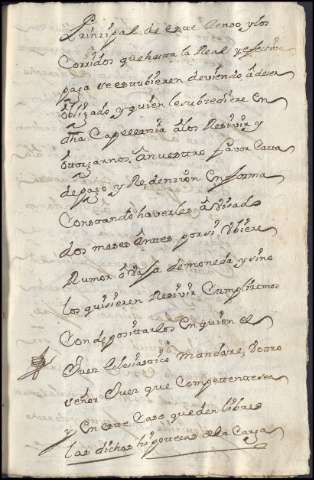 Principal de este Censo y los
Corridos que hasta la Real y efectiva
paga se estubieren deviendo a dho
obligado, y quien le subcediere En
dha Capellania a los Resivir y
otorgarnos, a nuestro favor Carta
de pago y Redencion En forma
Constando haverles avisado
dos meses antes por si Ubiere
Rumor de vaja de moneda y si no
los quisieren Resivir Cumpliremos
Con depositarlos En quien el
Juez Eclesiastico Mandare, U otro
señor Juez que Competente sea
y En este Caso queden libres
las dichas hipotecas de la Carga